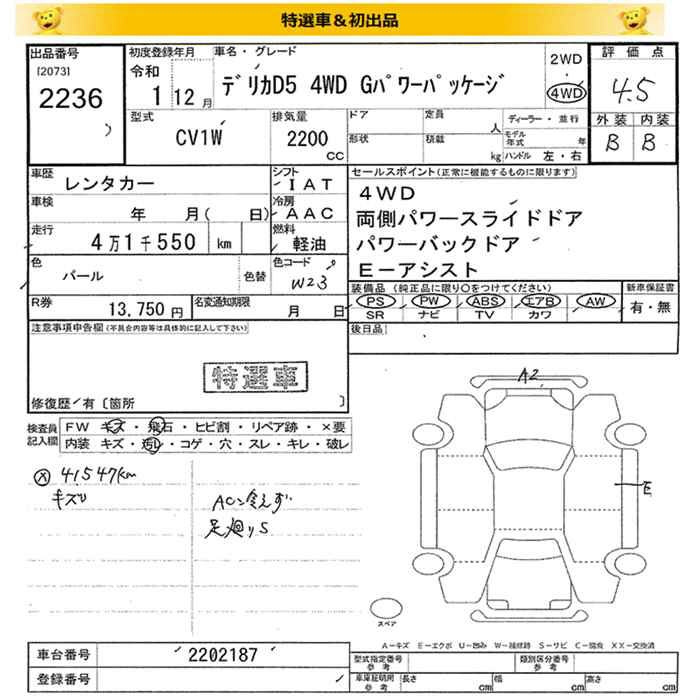 特選車＆初出品
出品番号
[2073]
2236
初度登録年月
令和
1 12月
車名・グレード
デリカD5 4WD Gパワーパッケージ
2WD
4WD
評価点
4.5
外装 内装
B B
型式
CV1W
排気量
2200
CC
ドア
定員
人
形状
積載
kg
ディーラー・並行
モデル年式
年
ハンドル 左・右
車歴
レンタカー
シフト
IAT
車検
年 月( 日)
冷房
AAC
走行
4万1千550 km
燃料
軽油
色
パール
色替
色コード
W23
R券
13,750円
名変通知期限
月 日
セールスポイント(正常に機能するものに限ります)
4WD
両側パワースライドドア
パワーバックドア
E－アシスト
装備品 (純正品に限り○をつけてください)
PS PW ABS エアB AW
SR ナビ TV カワ
新車保証書
有・無
後日品
注意事項申告欄(不具合内容等は具体的に記入して下さい)
特選車
修復歴/有〔箇所 〕
検査員記入欄
FW キズ・飛石・ヒビ割・リペア跡・×要
内装 キズ・汚し・コゲ・穴・スレ・キレ・破レ
ⓧ 41547km
キズ
AC冷えず
足廻りS
A2
E
スペア
A－キズ E－エクボ U－凹み W－補修跡 S－サビ C－腐食 XX－交換済
車台番号
2202187
登録番号
型式指定番号
参考
類別区分番号
参考
車庫証明用
参考
長さ cm
幅 cm
高さ cm